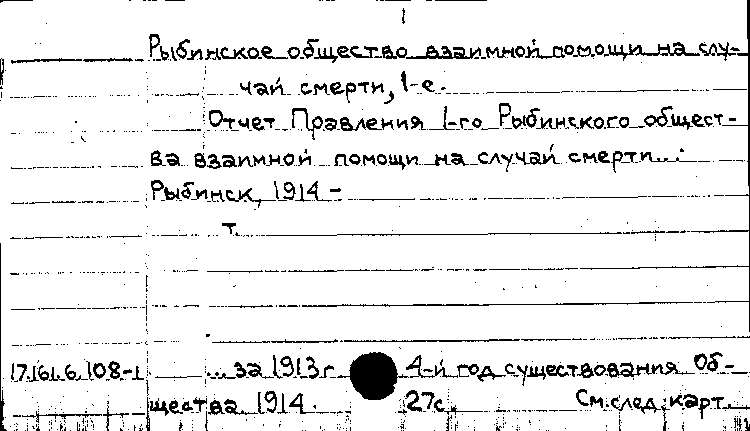 1
Рыбинское общество взаимной помощи на слу-
чай смерти, 1-е.
Отчет Правления 1-го Рыбинского общест-
ва взаимной помощи на случай смерти...:
Рыбинск, 1914 -
т.
17.161.6.108-1 ... за 1913 г. 4-й год существования Об-
щества. 1914. 27с. См.след.карт.